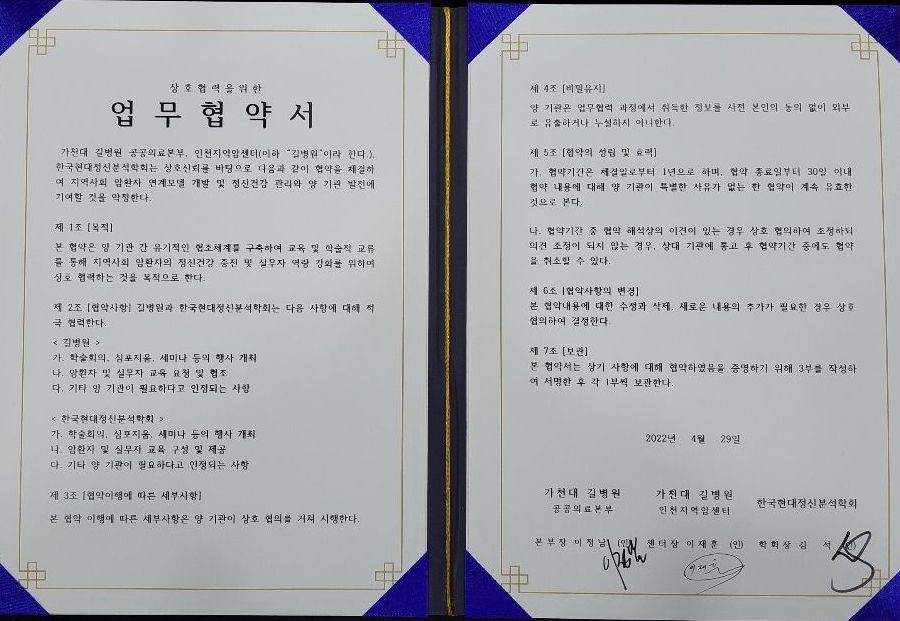 상호협력을위한
업무협약서
가천대 길병원 공공의료본부, 인천지역암센터(이하 "길병원"이라 한다.),
한국현대정신분석학회는 상호신뢰를 바탕으로 다음과 같이 협약을 체결하
여 지역사회 암환자 연계모델 개발 및 정신건강 관리와 양 기관 발전에
기여할 것을 약정한다.
제 1조 [목적]
본 협약은 양 기관 간 유기적인 협조체계를 구축하여 교육 및 학술적 교류
를 통해 지역사회 암환자의 정신건강 증진 및 실무자 역량 강화를 위하여
상호 협력하는 것을 목적으로 한다.
제 2조 [협약사항] 길병원과 한국현대정신분석학회는 다음 사항에 대해 적
극 협력한다.
< 길병원 >
가. 학술회의, 심포지움, 세미나 등의 행사 개최
나. 암환자 및 실무자 교육 요청 및 협조
다. 기타 양 기관이 필요하다고 인정되는 사항
< 한국현대정신분석학회 >
가. 학술회의, 심포지움, 세미나 등의 행사 개최
나. 암환자 및 실무자 교육 구성 및 제공
다. 기타 양 기관이 필요하다고 인정되는 사항
제 3조 [협약이행에 따른 세부사항]
본 협약 이행에 따른 세부사항은 양 기관이 상호 협의를 거쳐 시행한다.
제 4조 [비밀유지]
양 기관은 업무협력 과정에서 취득한 정보를 사전 본인의 동의 없이 외부
로 유출하거나 누설하지 아니한다.
제 5조 [협약의 성립 및 효력]
가. 협약기간은 체결일로부터 1년으로 하며, 협약 종료일부터 30일 이내
협약 내용에 대해 양 기관이 특별한 사유가 없는 한 협약이 계속 유효한
것으로 본다.
나. 협약기간 중 협약 해석상의 이견이 있는 경우 상호 협의하여 조정하되
의견 조정이 되지 않는 경우, 상대 기관에 통고 후 협약기간 중에도 협약
을 취소할 수 있다.
제 6조 [협약사항의 변경]
본 협약내용에 대한 수정과 삭제, 새로운 내용의 추가가 필요한 경우 상호
협의하여 결정한다.
제 7조 [보관]
본 협약서는 상기 사항에 대해 협약하였음을 증명하기 위해 3부를 작성하
여 서명한 후 각 1부씩 보관한다.
2022년 4월 29일
가천대 길병원 가천대 길병원 한국현대정신분석학회
공공의료본부 인천지역암센터
본부장 이정남 (인) 센터장 이재훈 (인) 학회장 김 석 (인)
이재훈